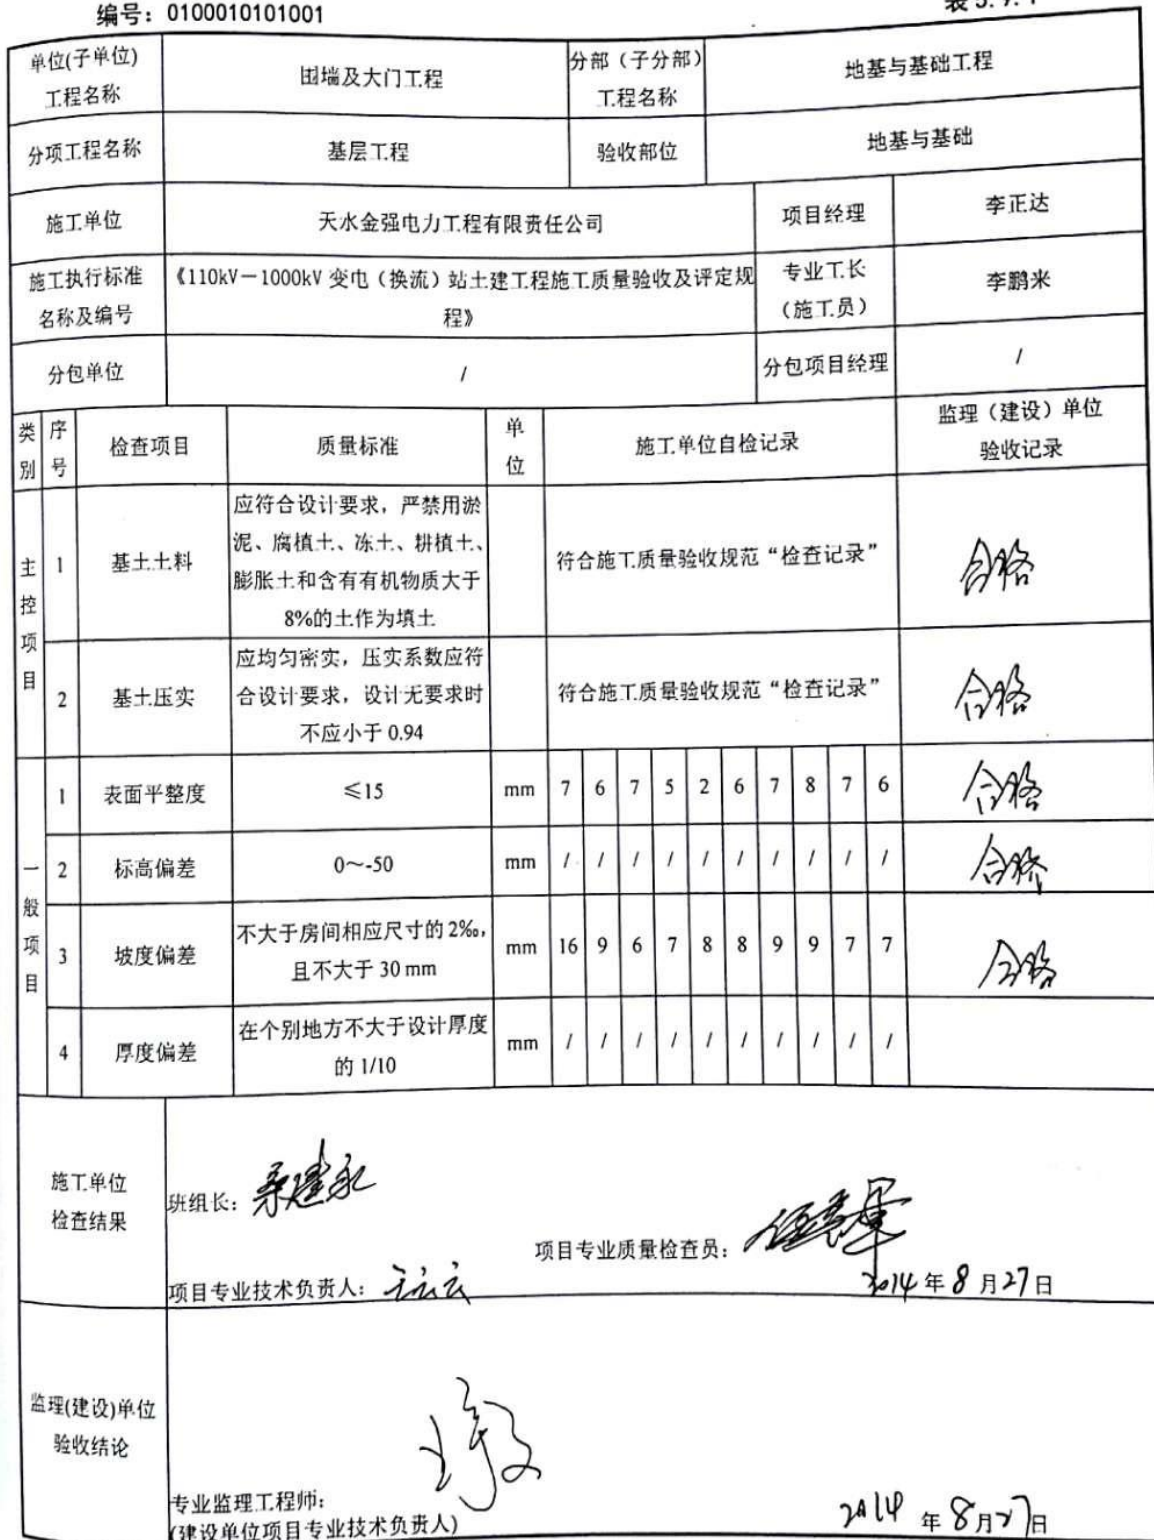 编号：0100010101001
单位(子单位)
工程名称
围墙及大门工程
分部（子分部）
工程名称
地基与基础工程
分项工程名称
基层工程
验收部位
地基与基础
施工单位
天水金强电力工程有限责任公司
项目经理
李正达
施工执行标准
名称及编号
《110kV－1000kV 变电（换流）站土建工程施工质量验收及评定规
程》
专业工长
（施工员）
李鹏来
分包单位
/
分包项目经理
/
类别
序号
检查项目
质量标准
单位
施工单位自检记录
监理（建设）单位
验收记录
主控项目
1
基土土料
应符合设计要求，严禁用淤
泥、腐植土、冻土、耕植土、
膨胀土和含有有机物质大于
8%的土作为填土
符合施工质量验收规范“检查记录”
合格
2
基土压实
应均匀密实，压实系数应符
合设计要求，设计无要求时
不应小于 0.94
符合施工质量验收规范“检查记录”
合格
一般项目
1 表面平整度 ≤15 mm 7 6 7 5 2 6 7 8 7 6 合格
2 标高偏差 0～-50 mm / / / / / / / / / / 合格
3
坡度偏差
不大于房间相应尺寸的 2‰，
且不大于 30 mm
mm 16 9 6 7 8 8 9 9 7 7 合格
4
厚度偏差
在个别地方不大于设计厚度
的 1/10
mm / / / / / / / / / /
施工单位
检查结果
班组长：
项目专业质量检查员：
项目专业技术负责人：
2014 年 8 月 27 日
监理(建设)单位
验收结论
专业监理工程师：
(建设单位项目专业技术负责人)
2014 年 8 月 27 日